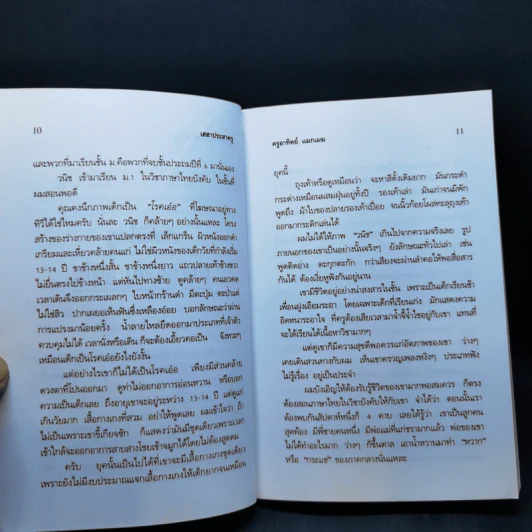 10 เฮฮาประสาครู
และพวกที่มาเรียนชั้น ม.คือพวกที่จบชั้นประถมปีที่ 6 มานั่นเอง
วนิช เข้ามาเรียน ม.1 ในวิชาภาษาไทยบังคับ ในชั้นที่
ผมสอนพอดี
คุณคงนึกภาพเด็กเป็น "โรคเอ๋อ" ที่โฆษณาอยู่ทาง
ทีวีได้ใช่ไหมครับ นั่นละ วนิช ก็คล้ายๆ อย่างนั้นแหละ โครง
สร้างของร่างกายของเขาแปลกตรงที่ เล็กแกร็น ผิวหนังออกดำ
เกรียมและเหี่ยวคล้ายคนแก่ ไม่ใช่ผิวหนังของเด็กวัยที่กำลังเริ่ม
13-14 ปี ขาข้างหนึ่งสั้น ขาข้างหนึ่งยาว แถมปลายเท้าข้างขวา
ไม่ยื่นตรงไปข้างหน้า แต่หันไปทางซ้าย ดูคล้ายๆ คนอวดด
เวลาเดินจึงออกกระเผลกๆ ใบหน้ากร้านดำ มีตะปุ่ม ตะป่ำแต่
ไม่ใช่สิว ปากเผยอเห็นฟันซี่เหลืองอ๋อย บอกลักษณะว่าผ่าน
การแปรงมาน้อยครั้ง น้ำลายไหลยืดออกมาประเภทที่เจ้าตัว
ควบคุมไม่ได้ เวลานั่งหรือเดิน ก็จะต้องเอี้ยวคอเป็น จังหวะๆ
เหมือนเด็กเป็นโรคเอ๋อยังไงยังงั้น
แต่อย่างไรเขาก็ไม่ได้เป็นโรคเอ๋อ เพียงมีส่วนคล้าย
ดวงตาที่โปนออกมา ดูท่าไม่ออกอาการอ่อนหวาน หรือบอก
ความเป็นเด็กเลย ถึงอายุเขาจะอยู่ระหว่าง 13-14 ปี แต่ดูแก่
เกินวัยมาก เสื้อกางเกงที่สวม อย่าให้พูดเลย ผมเข้าใจว่า ถ้า
ไม่เป็นเพราะเขาขี้เกียจซัก ก็แสดงว่ามันมีชุดเดียวเพราะเวลา
เข้าใกล้จะออกอาการสาบสางโชยเข้าจมูกได้โดยไม่ต้องสูดดม
ครับ ยุคนั้นเป็นไปได้ที่เขาจะมีเสื้อกางเกงชุดเดียว
เพราะยังไม่มีงบประมาณแจกเสื้อกางเกงให้เด็กยากจนเหมือน
ครูอาทิตย์ แมกเมฆ 11
ยุคนี้
ถุงเท้าหรือดูเหมือนว่า จะหาสีดั้งเดิมยาก มันกระดำ
กระด่างเหมือนผสมฝุ่นอยู่ทั้งปี รองเท้าเล่า มันเก่าจนมีพัก
พูดถึง ผ้าใบของปลายรองเท้าเปื่อย จนนิ้วก้อยโผล่ทะลุถุงเท้า
ออกมากระดิกเล่นได้
ผมไม่ได้ให้ภาพ "วนิช" เกินไปจากความจริงเลย รูป
ภายนอกของเขาเป็นอย่างนั้นจริงๆ ยังลักษณะทั่วไปเล่า เช่น
พูดติดอ่าง ตะกุกตะกัก กว่าเสียงจะผ่านลำคอให้พอสื่อสาร
กันได้ ต้องเงี่ยหูฟังกันอยู่นาน
เขามีชีวิตอยู่อย่างน่าสงสารในชั้น เพราะเป็นเด็กเรียนช้า
เพื่อนฝูงเอือมระอา โดยเฉพาะเด็กที่เรียนเก่ง มักแสดงความ
อิดหนาระอาใจ ที่ครูต้องเสียเวลามาจ้ำจี้จ้ำไชอยู่กับเขา แทนที่
จะได้เรียนได้เนื้อหาวิชามากๆ
แต่ดูเขาก็มีความสุขตามควรแก่อัตภาพของเขา ว่างๆ
เคยเดินสวนทางกับผม เห็นเขาครวญเพลงหงิงๆ ประเภทฟัง
ไม่รู้เรื่อง อยู่เป็นประจำ
ผมบังเอิญให้ต้องรับรู้ชีวิตของเขามากพอสมควร ก็ตรง
ต้องสอนภาษาไทยในวิชาบังคับให้กับเขา จำได้ว่า ตอนนั้นเรา
ต้องพบกันสัปดาห์หนึ่งก็ 4 คาบ เลยได้รู้ว่า เขาเป็นลูกคน
สุดท้อง มีพี่ชายคนหนึ่ง มีพ่อแม่ที่แก่ชรามากแล้ว พ่อของเขา
ไม่ได้ทำอะไรมาก ว่างๆ ก็ขึ้นตาล เอาน้ำหวานมาทำ "หวาก"
หรือ "กระแช่" ของภาคกลางนั่นแหละ